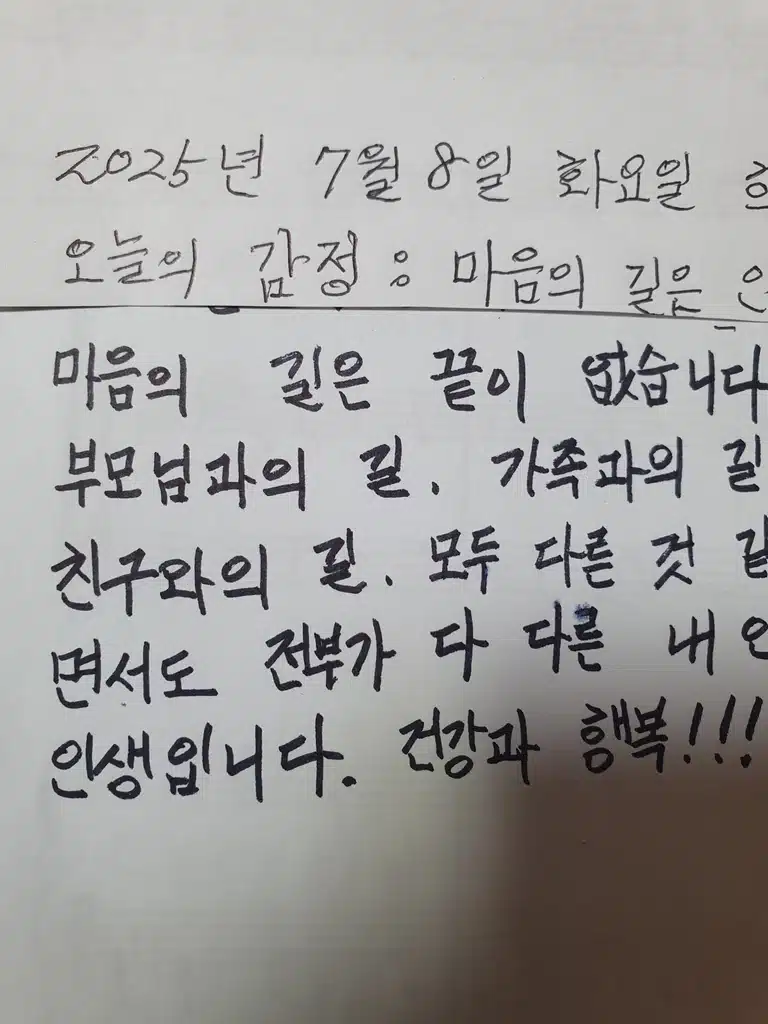 2025년 7월 8일 화요일
오늘의 감정 : 마음의 길은
마음의 길은 끝이 없습니다
부모님과의 길. 가족과의 길
친구와의 길. 모두 다른 것
면서도 전부가 다 다른 내
인생입니다. 건강과 행복!!!